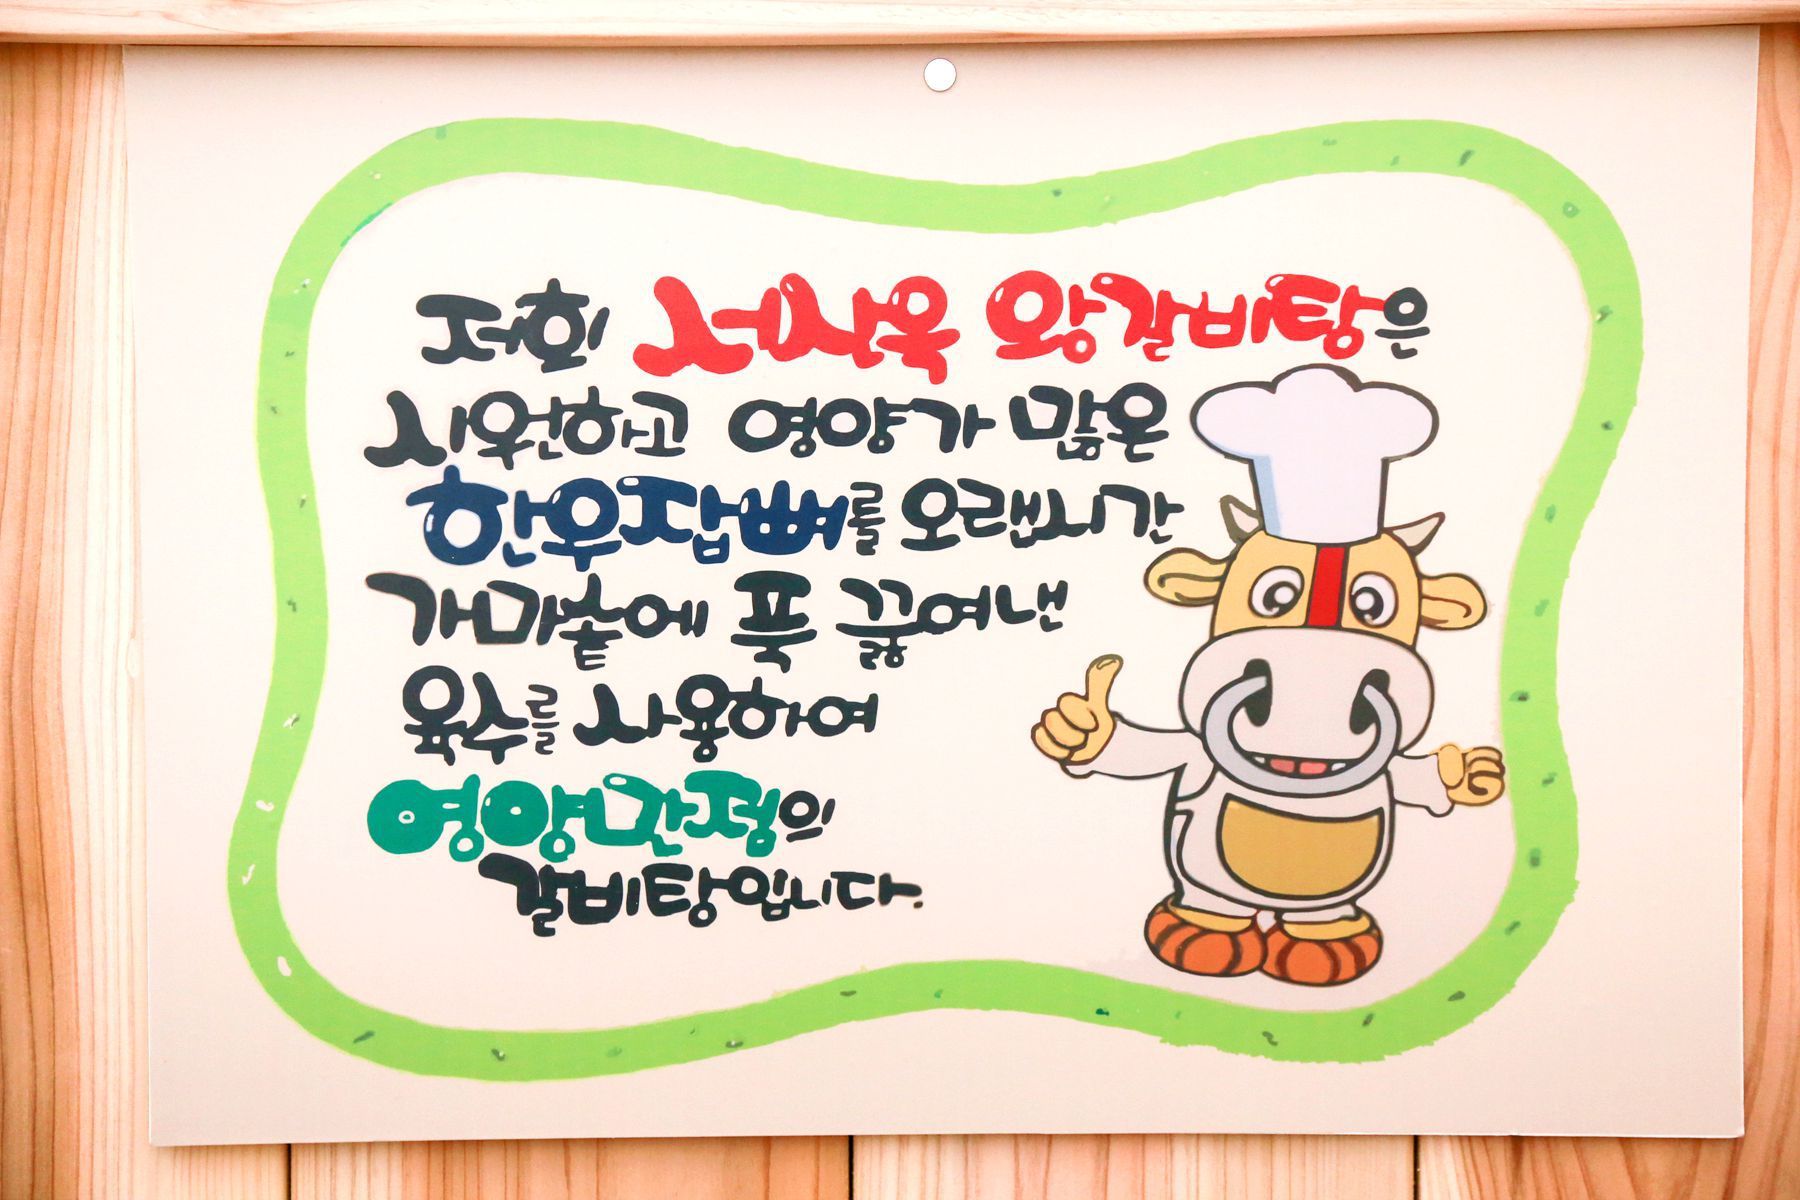 저희 서서옥 왕갈비탕은
시원하고 영양가 많은
한우잡뼈를 오랜시간
가마솥에 푹 끓여낸
육수를 사용하여
영양간점의
갈비탕입니다.